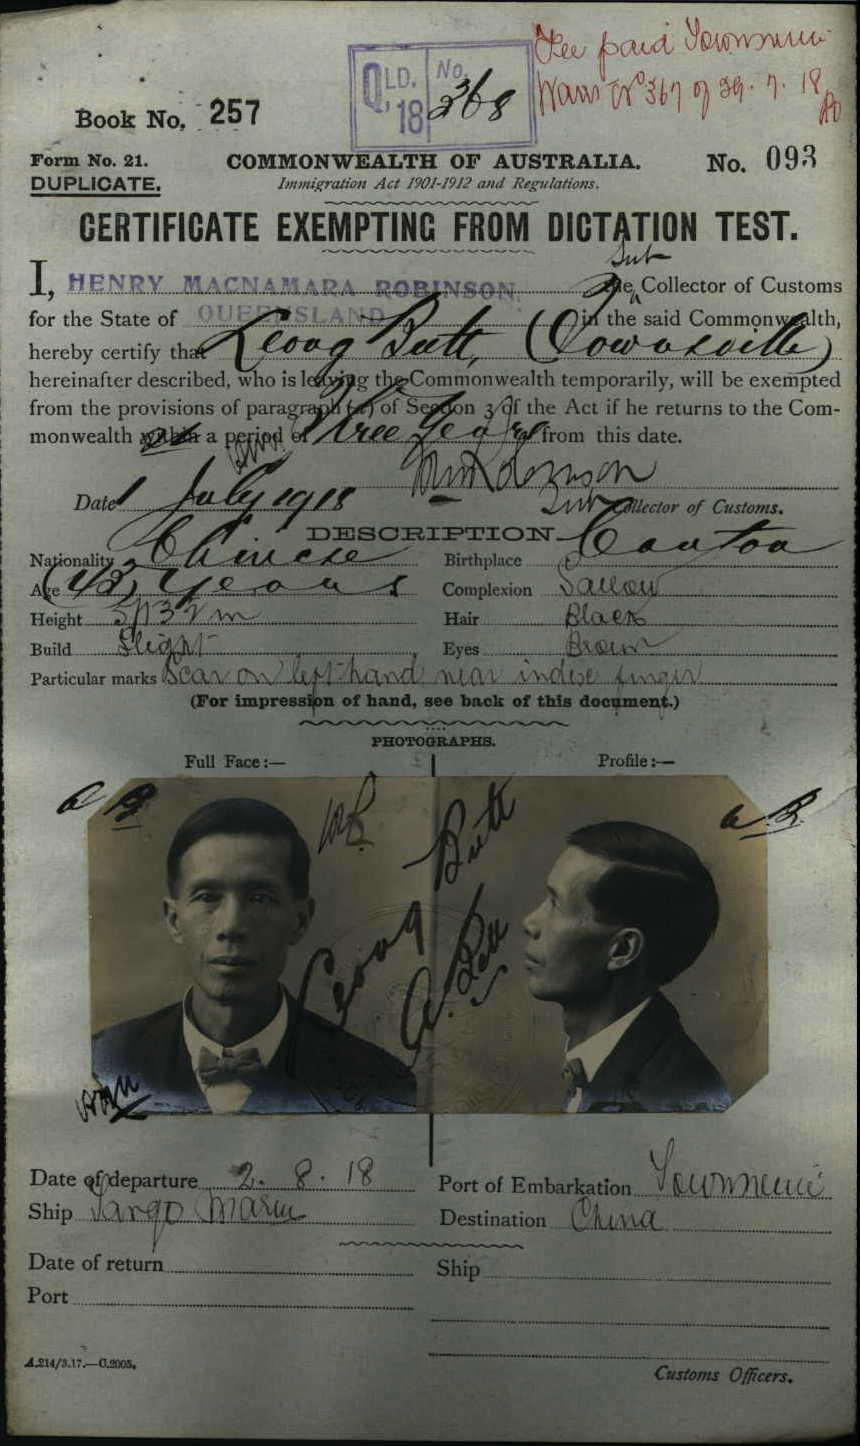 Fee paid Townsville
No. 367 of 29.7.18
QLD. No.
Q, 18 368
Book No. 257
Form No. 21. COMMONWEALTH OF AUSTRALIA. No. 093
DUPLICATE. Immigration Act 1901-1912 and Regulations.
CERTIFICATE EXEMPTING FROM DICTATION TEST.
Sub
I, HENRY MACNAMARA ROBINSON the Collector of Customs
for the State of QUEENSLAND in the said Commonwealth,
hereby certify that Leong Butt, (Townsville)
hereinafter described, who is leaving the Commonwealth temporarily, will be exempted
from the provisions of paragraph (a) of Section 3 of the Act if he returns to the Com-
monwealth within a period of Three Years from this date.
Date 1 July 1918 Sub Collector of Customs.
DESCRIPTION
Nationality Chinese Birthplace Canton
Age (43) years Complexion Sallow
Height Hair Black
Build Slight Eyes Brown
Particular marks Scar on left hand near index finger
(For impression of hand, see back of this document.)
PHOTOGRAPHS.
Full Face:— Profile:—
Leong Butt
Date of departure 2.8.18 Port of Embarkation Townsville
Ship Tango Maru Destination China
Date of return Ship
Port
A.214/3.17.—C.2005.
Customs Officers.